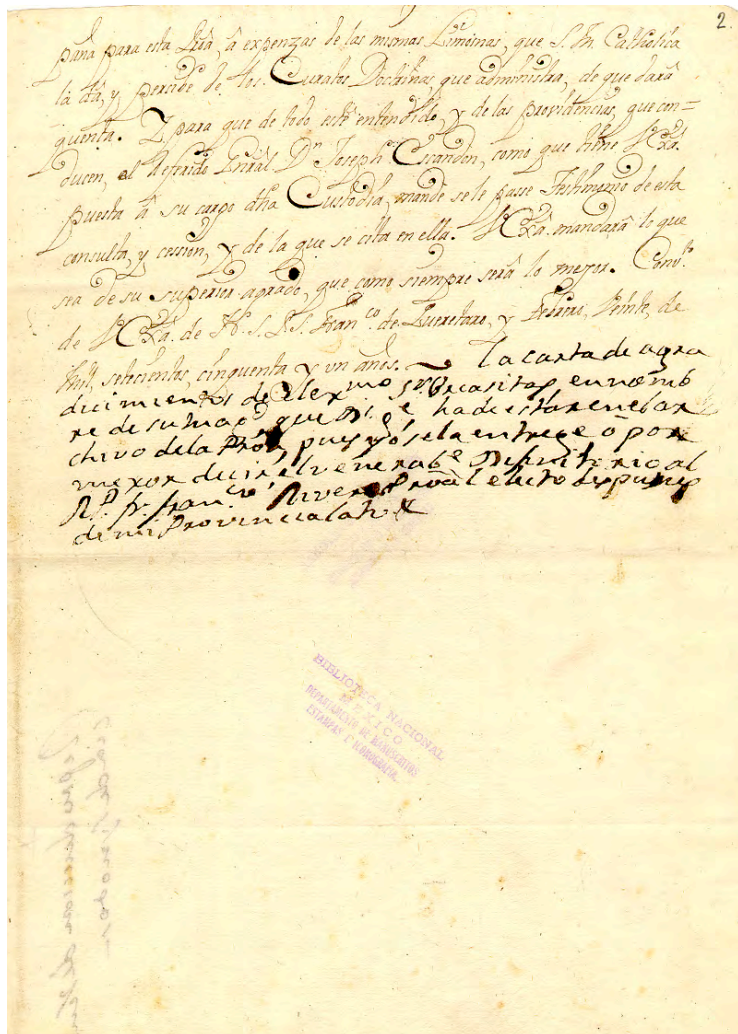 2.
paña para esta Prâ, â expenzas de las mismas Limosnas, que S. M. Catholica
la dâ, y percibe de los Curatos Doctrinas, que administra, de que darâ
quenta. Y para que de todo estê entendido, y de las providencias, que con=
ducen, el Referido Dn Joseph Escandon, como que tiene VExâ.
puesta â su cargo dha Custodia, mande se le passe Testimonio de esta
consulta, y cession, y de la que se cita en ella. VExâ. mandarâ lo que
sea de su superior agrado, que como siempre serâ lo mejor. Convto
de VExâ. de N. S. P. S. Franco de Queretaro, y Febrero, Veinte, de
Mill, setecientos, cinquenta y un años. La carta de agra
dicimientos de el exmo sr en nomb
re de su magd que ha de estar en el ar
chivo de la Prova, pues yo se la entregê ô por
mexor decir el venerabe Difinitorio al
R.P. fr. Franco Rivera Provl electo despues
de mi Provincialato
BIBLIOTECA NACIONAL
MEXICO
DEPARTAMENTO DE MANUSCRITOS
ESTAMPAS Y ICONOGRAFIA.